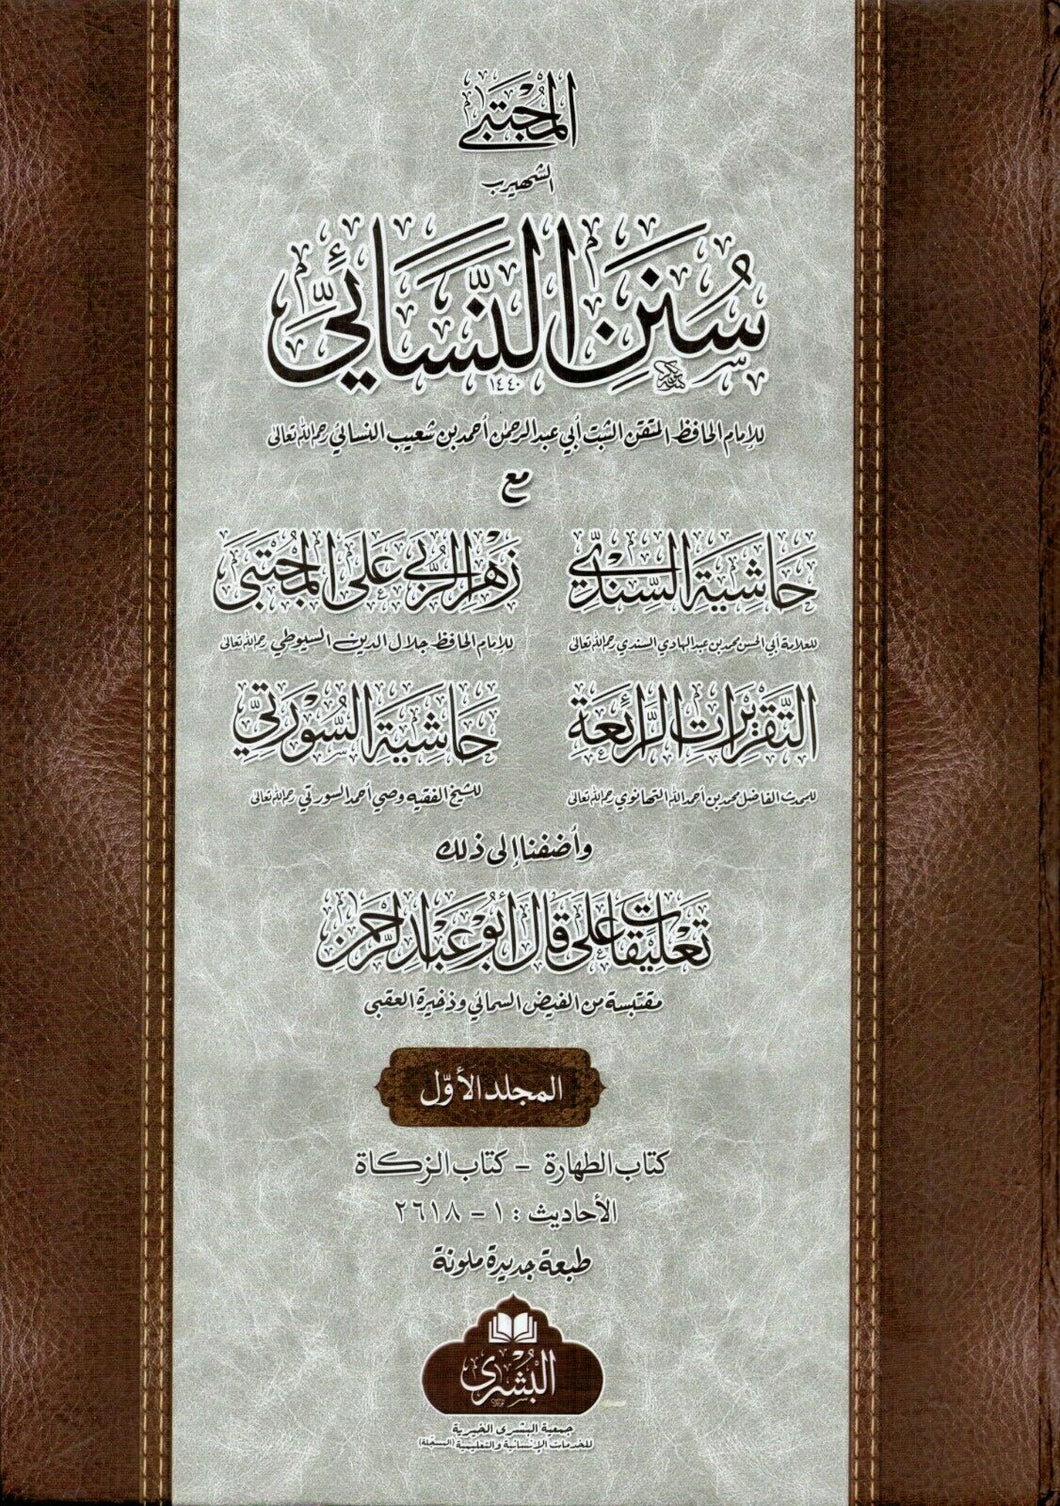 المجتبى
الشهير ب
سُنَنِ النَّسَائِيِّ
١٤٤٠
للإمام الحافظ المتقن الثبت أبي عبد الرحمن أحمد بن شعيب النسائي رحمه الله تعالى
مع
حَاشِيَة السِّنْدِيّ
زَهْر الرُّبى عَلَى المُجْتَبَى
للعلامة أبي الحسن محمد بن عبد الهادي السندي رحمه الله تعالى
للإمام الحافظ جلال الدين السيوطي رحمه الله تعالى
التَّقْرِيْرَات الرَّائِعَة
حَاشِيَة السُّوْرَتِيّ
للمحدث الفاضل محمد بن أحمد الله التهانوي رحمه الله تعالى
للشيخ الفقيه وصي أحمد السورتي رحمه الله تعالى
وأضفنا إلى ذلك
تَعْلِيْقَات عَلى قَالَ أَبُوْ عَبْد الرَّحمن
مقتبسة من الفيض السمائي وذخيرة العقبى
المجلد الأوّل
كتاب الطهارة - كتاب الزكاة
الأحاديث : ١ - ٢٦١٨
طبعة جديدة ملونة
البُشْرَى
جمعية البشرى الخيرية
للخدمات الإنسانية والتعليمية (المسجلة)